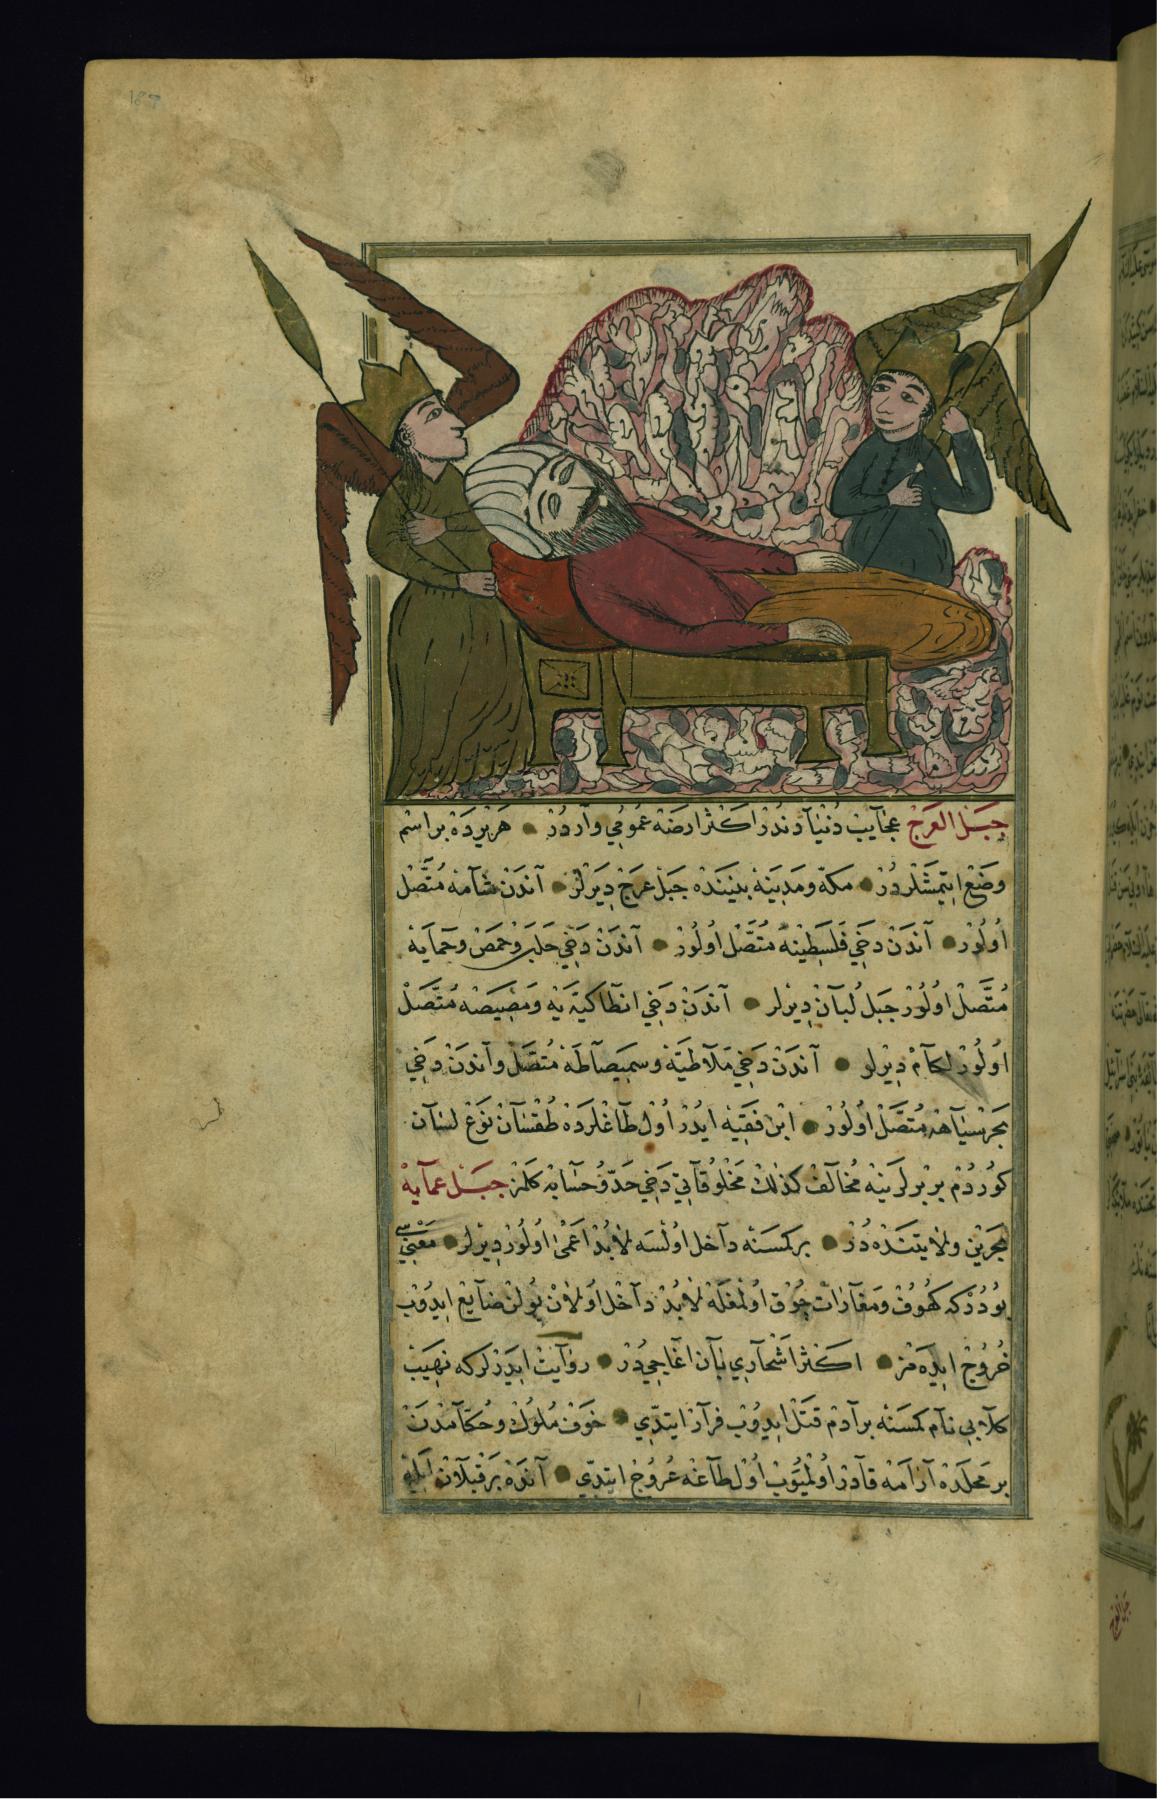 جبل العرج عجايب دنيادندر اكثر ارضه عمومي واردر هر يرده بر اسم
وضع ايتمشلردر مكه ومدينه بيننده جبل عرج ديرلر آندن شامه متصل
اولور آندن دخي فلسطينه متصل اولور آندن دخي حلب وحمص وحمايه
متصل اولور جبل لبان ديرلر آندن دخي انطاكيه يه ومصيصه متصل
اولور لكام ديرلر آندن دخي ملاطيه وسميصاطه متصل وآندن دخي
بحر سياهه متصل اولور ابن فقيه ايدر اول طاغلرده طقسان نوع لسان
كوردم بربرلرينه مخالف كذلك مخلوقاتي دخي حد وحسابه كلمز جبل عمايه
بحرين ولايتنده در بر كمسنه داخل اولسه لابد اعمى اولور ديرلر معنيسي
بودركه كهوف ومغارات چوق اولمغله لابد داخل اولان يولن ضايع ايدوب
خروج ايده مز اكثر اشجاري بان اغاجيدر روايت ايدرلركه نهيب
كلابي نام كمسنه بر آدم قتل ايدوب فرار ايتدي خوف ملوك وحكامدن
بر محلده آرامه قادر اولميوب اول طاغه عروج ايتدي آنده بر قپلان ايله